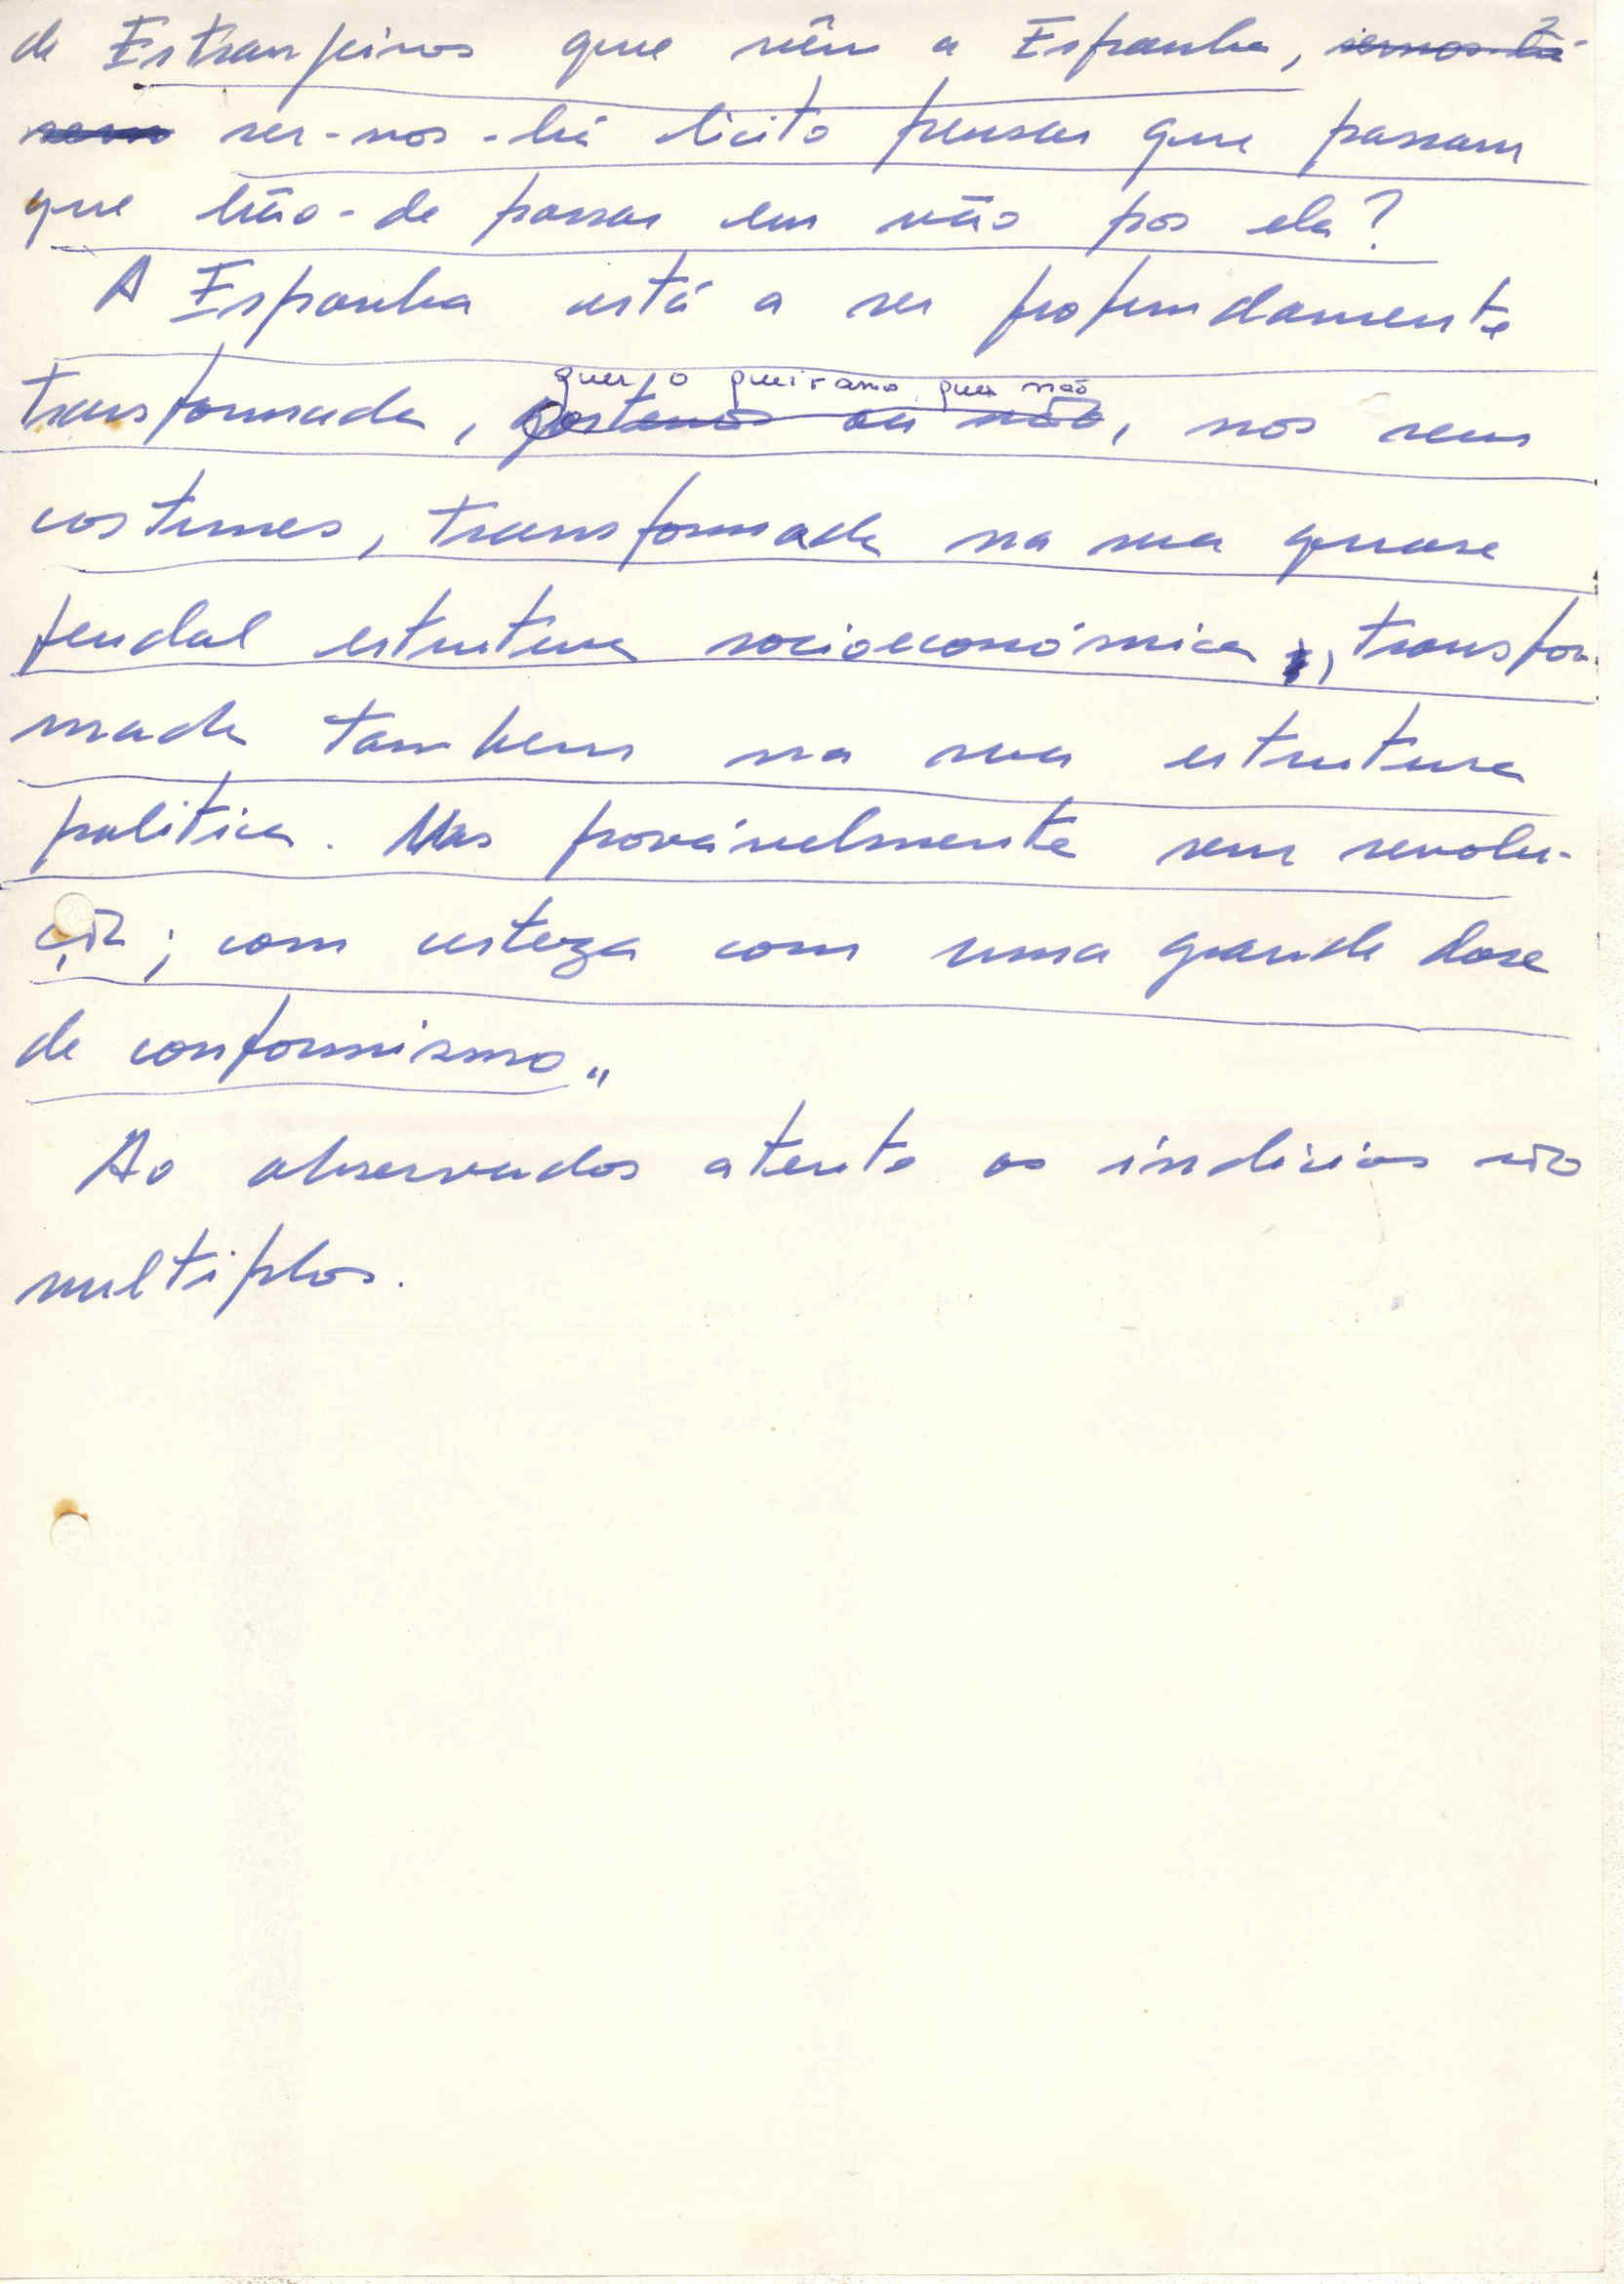 de Estrangeiros que vêm a Espanha,
ser-nos-há licito pensar que passam
que hão-de passar em vão por ela?
A Espanha está a ser profundamente
quer o queiramos quer não
transformada, gostemos ou não, nos seus
costumes, transformada na sua quase
feudal estrutura socioeconómica, transfor-
mada tambem na sua estrutura
politica. Mas provávelmente sem revolu-
ção; com certeza com uma grande dose
de conformismo„
Ao observador atento os indicios são
multiplos.